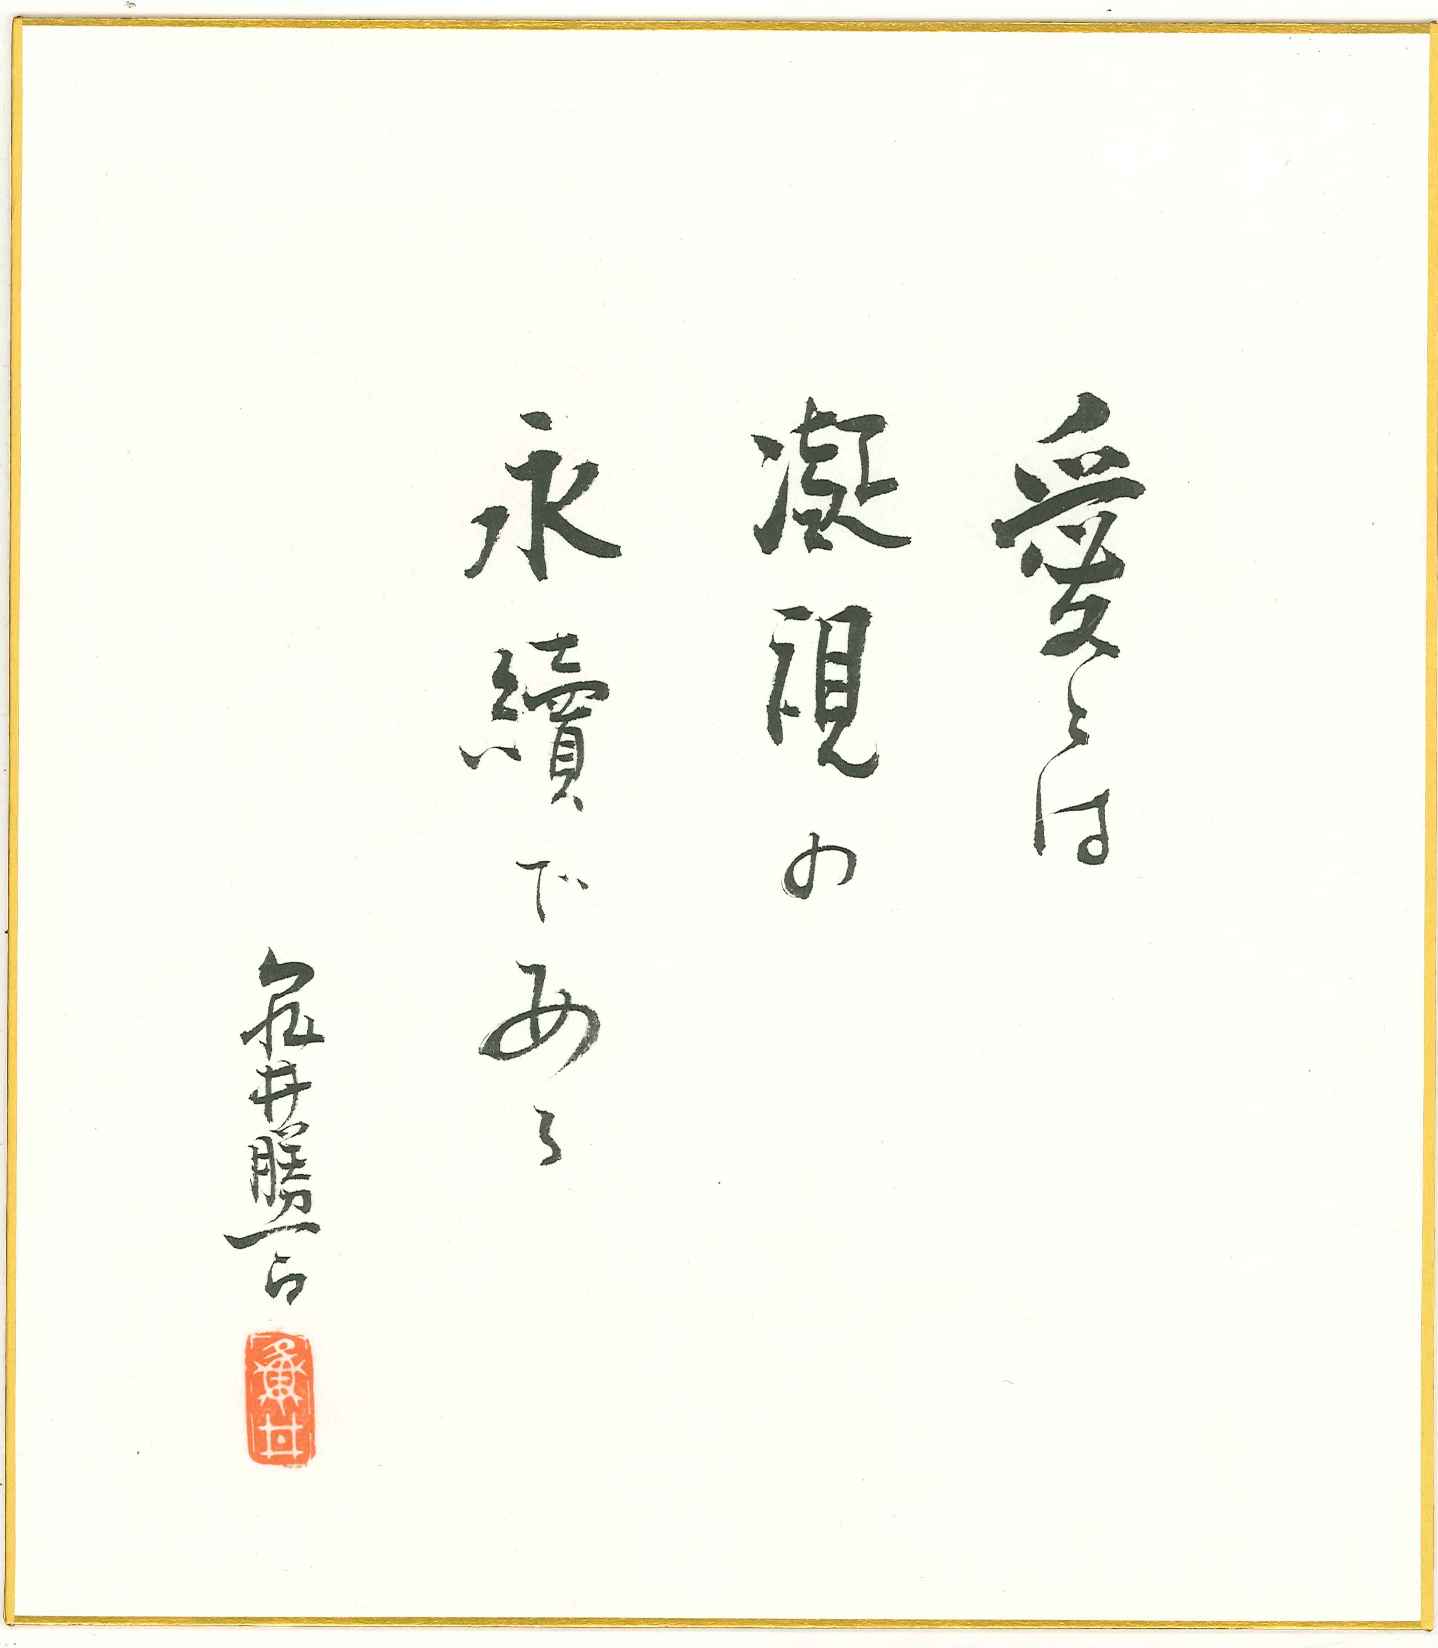 愛とは
凝視の
永續である
亀井勝一郎
亀井